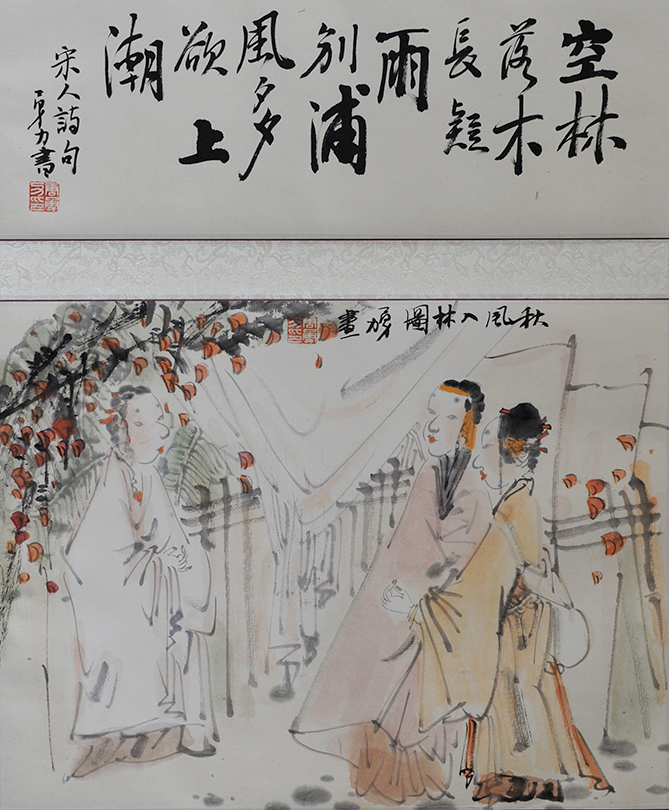 空林
落木
長疑
雨
別浦
風多
欲上
潮
宋人詩句
勇書
秋風入林圖 勇畫